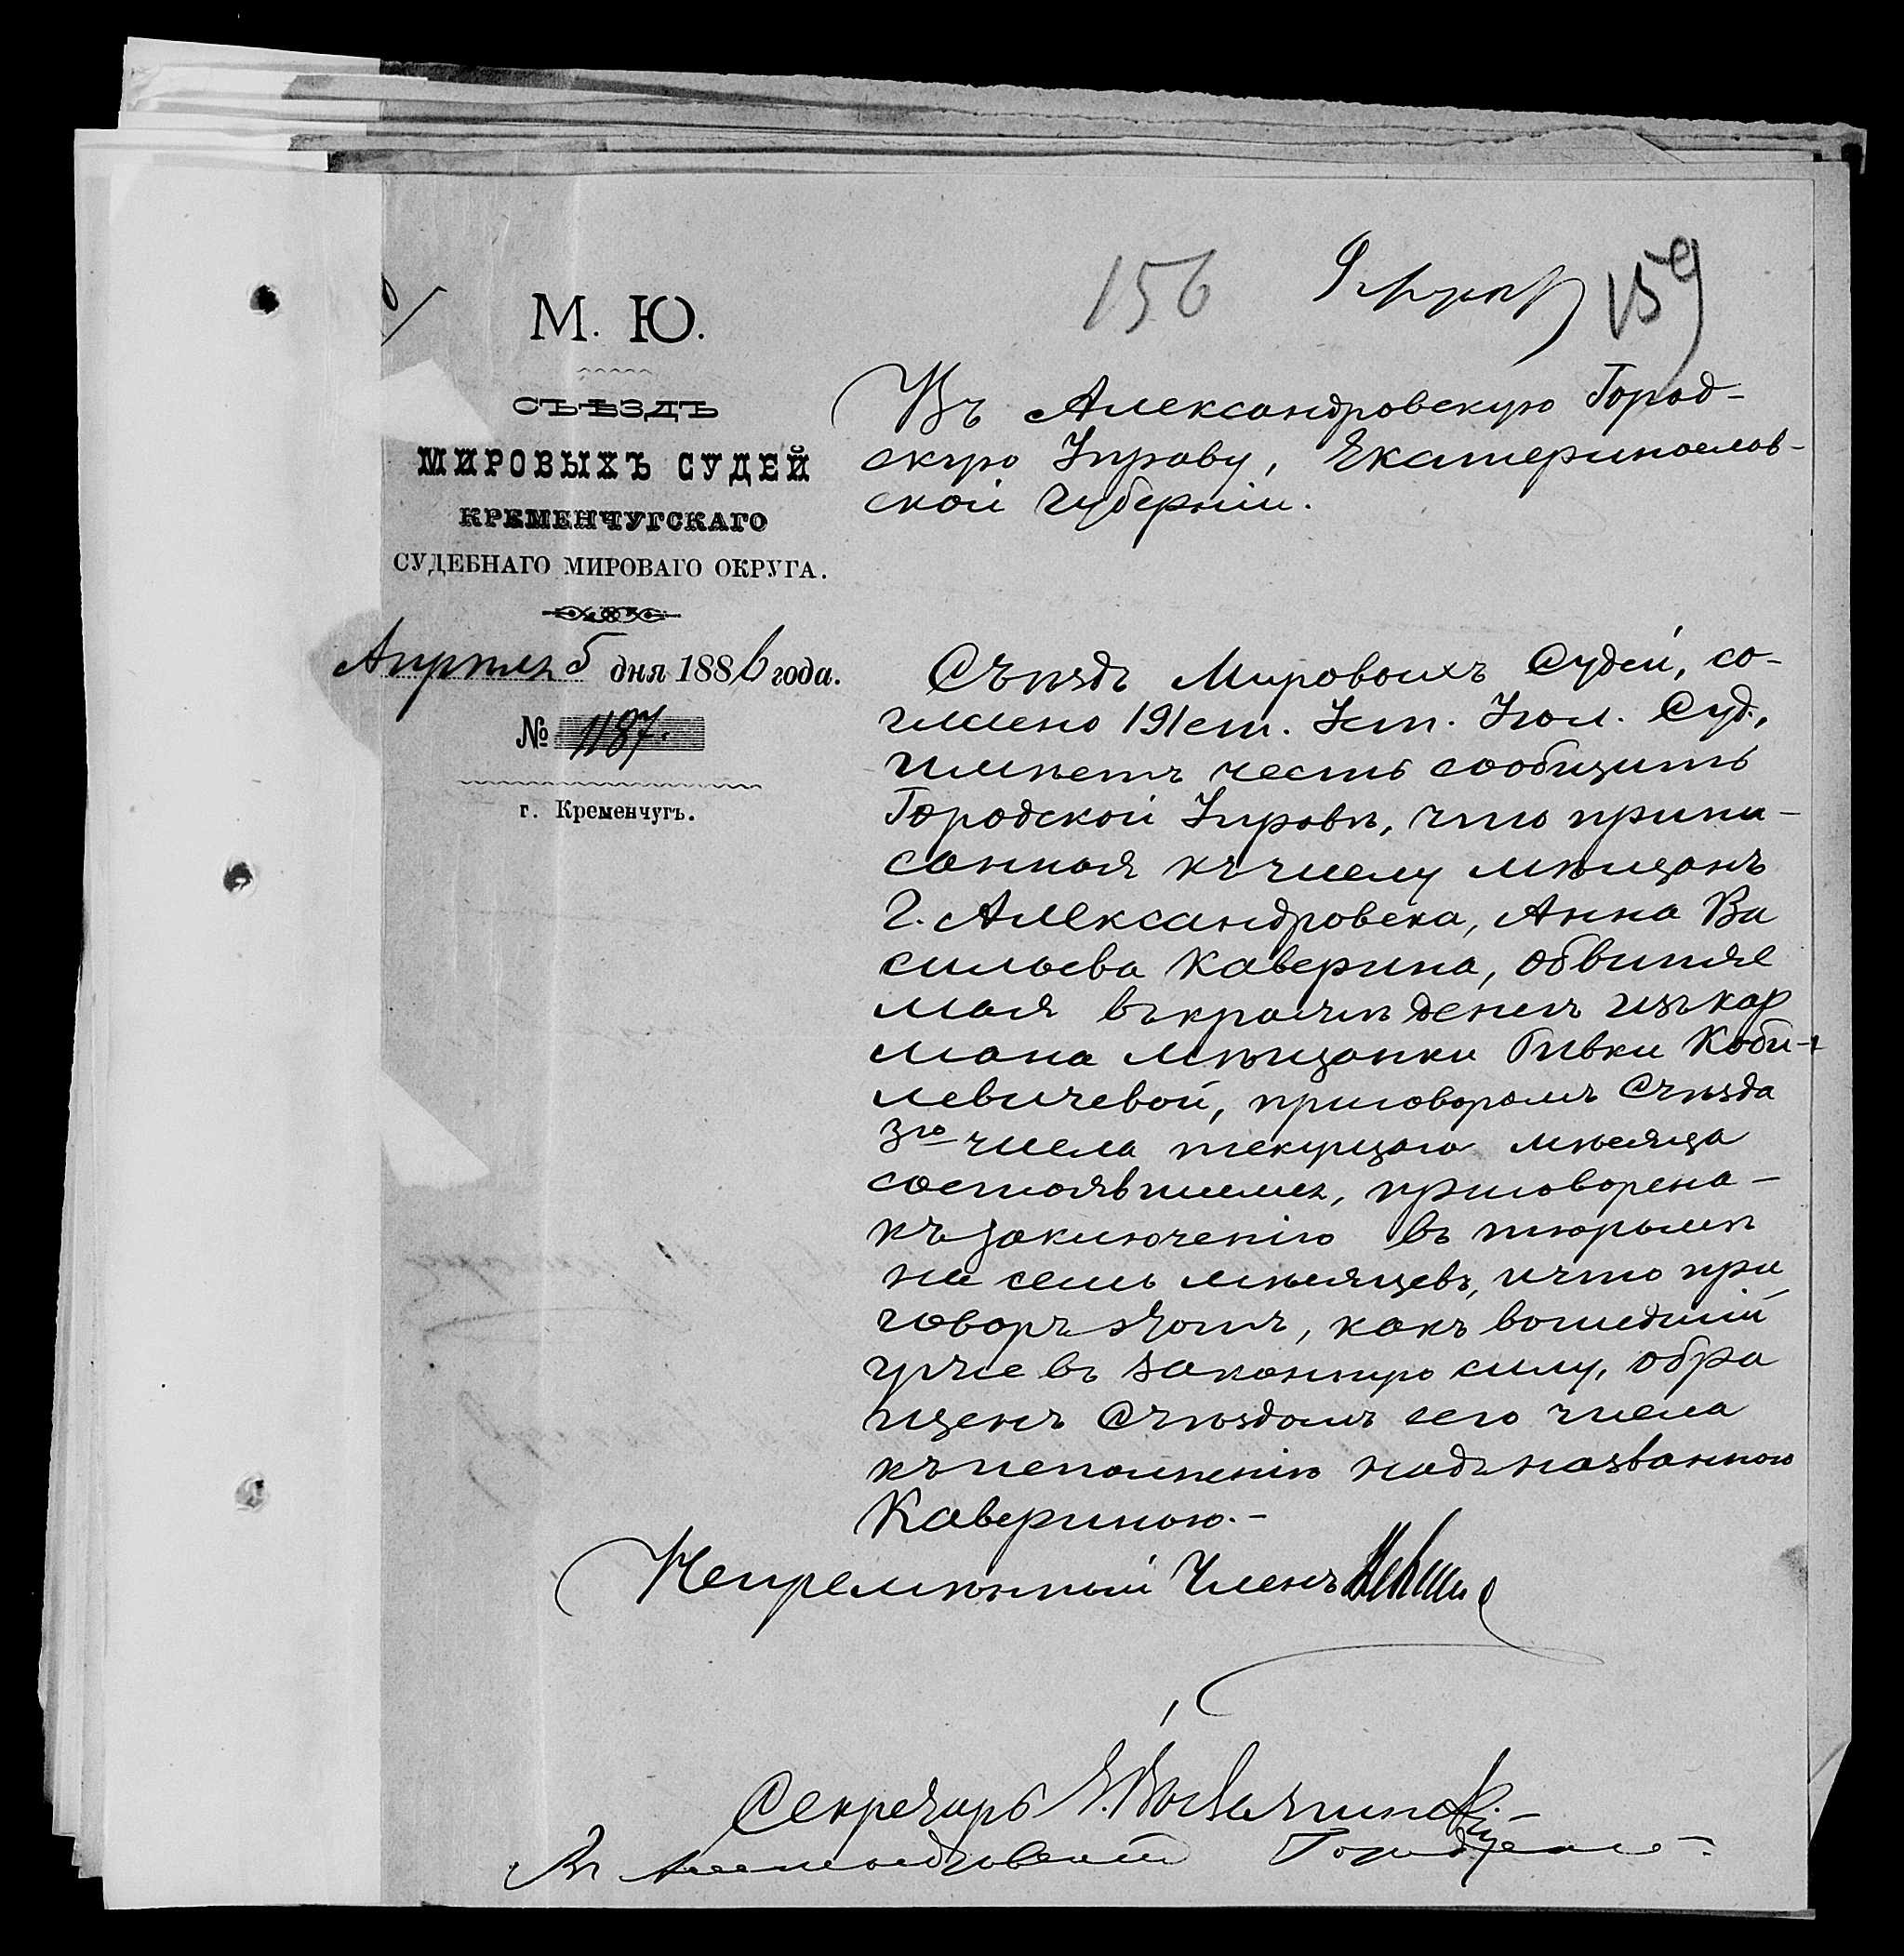 156
159
М. Ю.
СЪѢЗДЪ
МИРОВЫХЪ СУДЕЙ
КРЕМЕНЧУГСКАГО
СУДЕБНАГО МИРОВАГО ОКРУГА.
Апрѣля 5 дня 1886 года.
№ 1187.
г. Кременчугъ.
Въ Александровскую Город-
скую Управу, Екатеринослав-
ской губерніи.
Съѣздъ Мировыхъ Судей, со-
гласно 191 ст. Уст. Угол. Суд.,
имѣетъ честь сообщить
Городской Управѣ, что припи-
санная къ числу мѣщанъ
г. Александровска, Анна Ва
сильева Каверина, обвиняе
мая въ кражѣ денегъ изъ кар
мана мѣщанки Ривки Коби-
левичевой, приговоромъ Съѣзда
3го числа текущаго мѣсяца
состоявшимся, приговорена-
къ заключенію въ тюрьмѣ
на семь мѣсяцевъ, и что при
говоръ этотъ, какъ вошедшій
уже въ законную силу, обра
щенъ Съѣздомъ сего числа
къ исполненію надъ названною
Кавериною.-
Непремѣнный Членъ
Секретарь